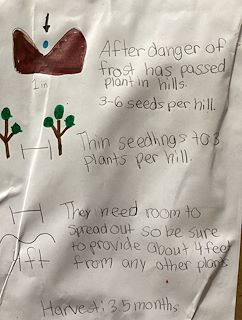 After danger of
frost has passed
plant in hills.
1 in
3-6 seeds per hill.
Thin seedlings to 3
plants per hill.
They need room to
spread out so be sure
to provide about 4 feet
from any other plants
4 ft
Harvest: 3.5 months